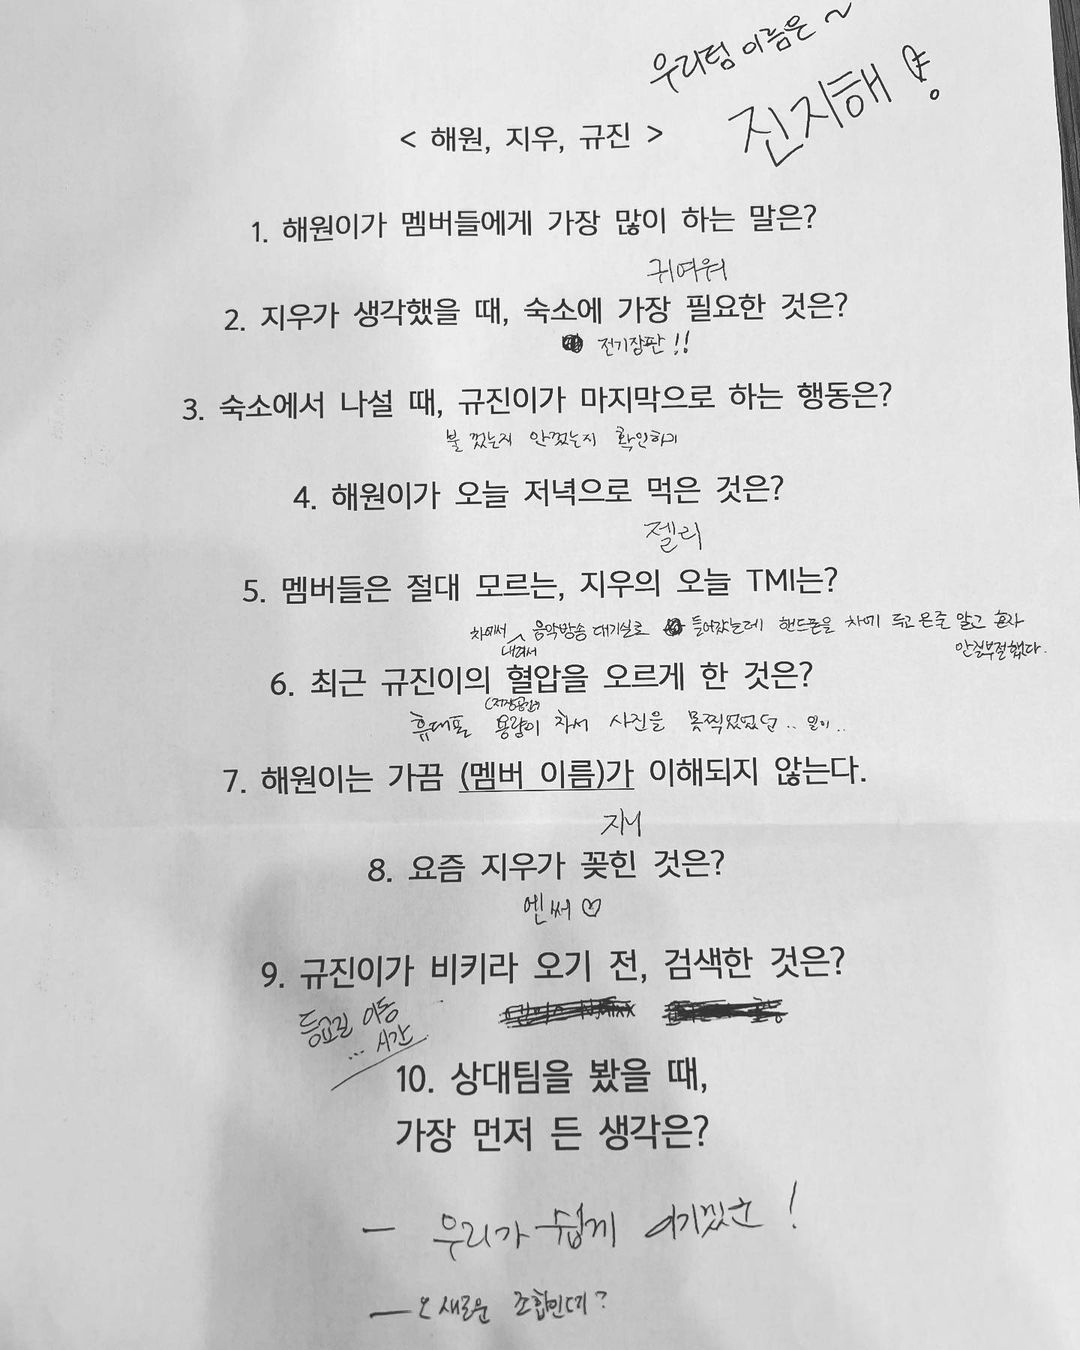 우리팀 이름은 ~
진지해
< 해원, 지우, 규진 >
1. 해원이가 멤버들에게 가장 많이 하는 말은?
귀여워
2. 지우가 생각했을 때, 숙소에 가장 필요한 것은?
전기장판!!
3. 숙소에서 나설 때, 규진이가 마지막으로 하는 행동은?
불 껐는지 안껐는지 확인하기
4. 해원이가 오늘 저녁으로 먹은 것은?
젤리
5. 멤버들은 절대 모르는, 지우의 오늘 TMI는?
차에서 내려서 음악방송 대기실로 들어갔는데 핸드폰을 차에 두고 온줄 알고 혼자
안절부절했다.
6. 최근 규진이의 혈압을 오르게 한 것은?
(저장공간)
휴대폰 용량이 차서 사진을 못찍었었던.. 일이..
7. 해원이는 가끔 (멤버 이름)가 이해되지 않는다.
지니
8. 요즘 지우가 꽂힌 것은?
엔써 ♡
9. 규진이가 비키라 오기 전, 검색한 것은?
등교길 이동
... 시간
10. 상대팀을 봤을 때,
가장 먼저 든 생각은?
- 우리가 쉽게 이기겠군!
- 오 새로운 조합인데?